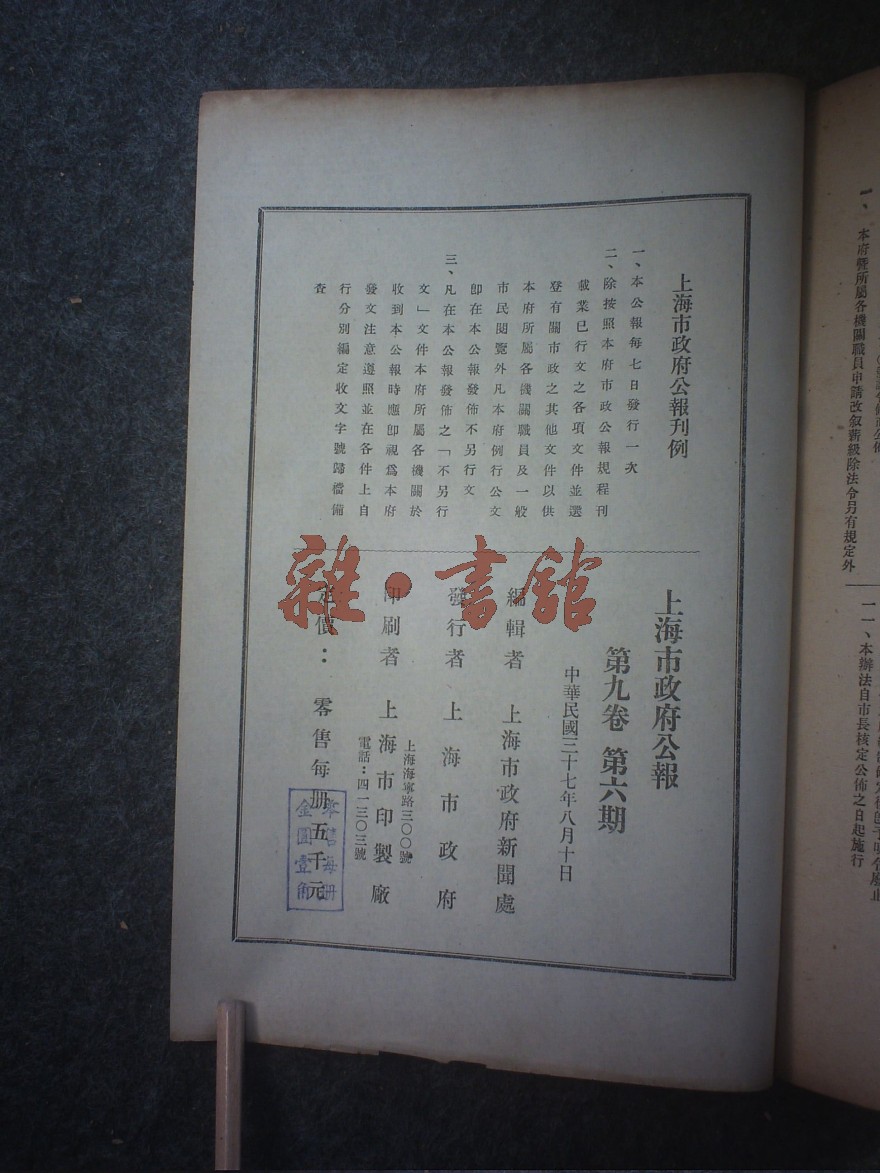 上海市政府公報刊例
一、本公報每七日發行一次
二、除按照本府市政公報規程刊
載業已行文之各項文件並選
登有關市政之其他文件以供
本府所屬各機關職員及一般
市民閱覽外凡本府例行公文
即在本公報發佈不另行文
三、凡在本公報發佈之「不另行
文」文件本府所屬各機關於
收到本公報時應即視爲本府
發文注意遵照並在各件上自
行分別編定收文字號歸檔備
查
上海市政府公報
第九卷 第六期
中華民國三十七年八月十日
編輯者 上海市政府新聞處
發行者 上海市政府
印刷者 上海市印製廠
上海海寧路三〇〇號
電話：四一三〇三號
定價： 零售每册五千元
零售每册
金圓壹角
雜·書館
一、本府暨所屬各機關職員申請改叙薪級除法令另有規定外
一一、本辦法自市長核定公佈之日起施行